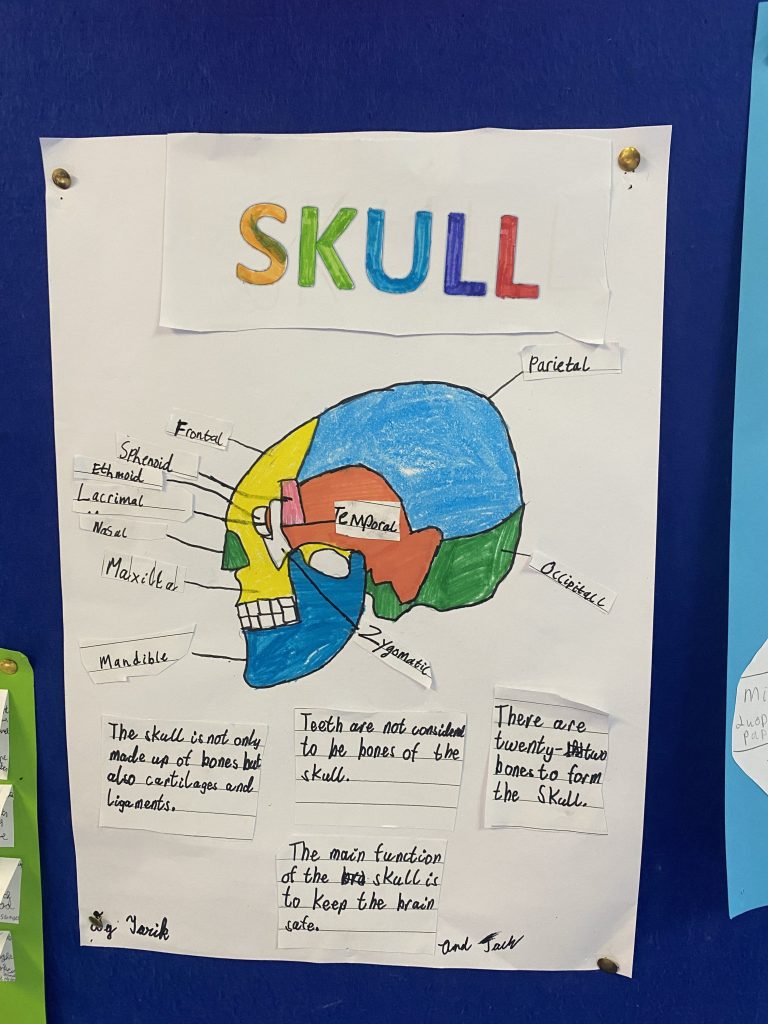 SKULL
Parietal
Frontal
Sphenoid
Ethmoid
Lacrimal
Nasal
Temporal
Maxilla
Occipitall
Zygomatic
Mandible
The skull is not only
made up of bones but
also cartilages and
ligaments.
Teeth are not considerd
to be bones of the
skull.
There are
twenty-two
bones to form
the Skull.
The main function
of the skull is
to keep the brain
safe.
By Tarik
and Jack